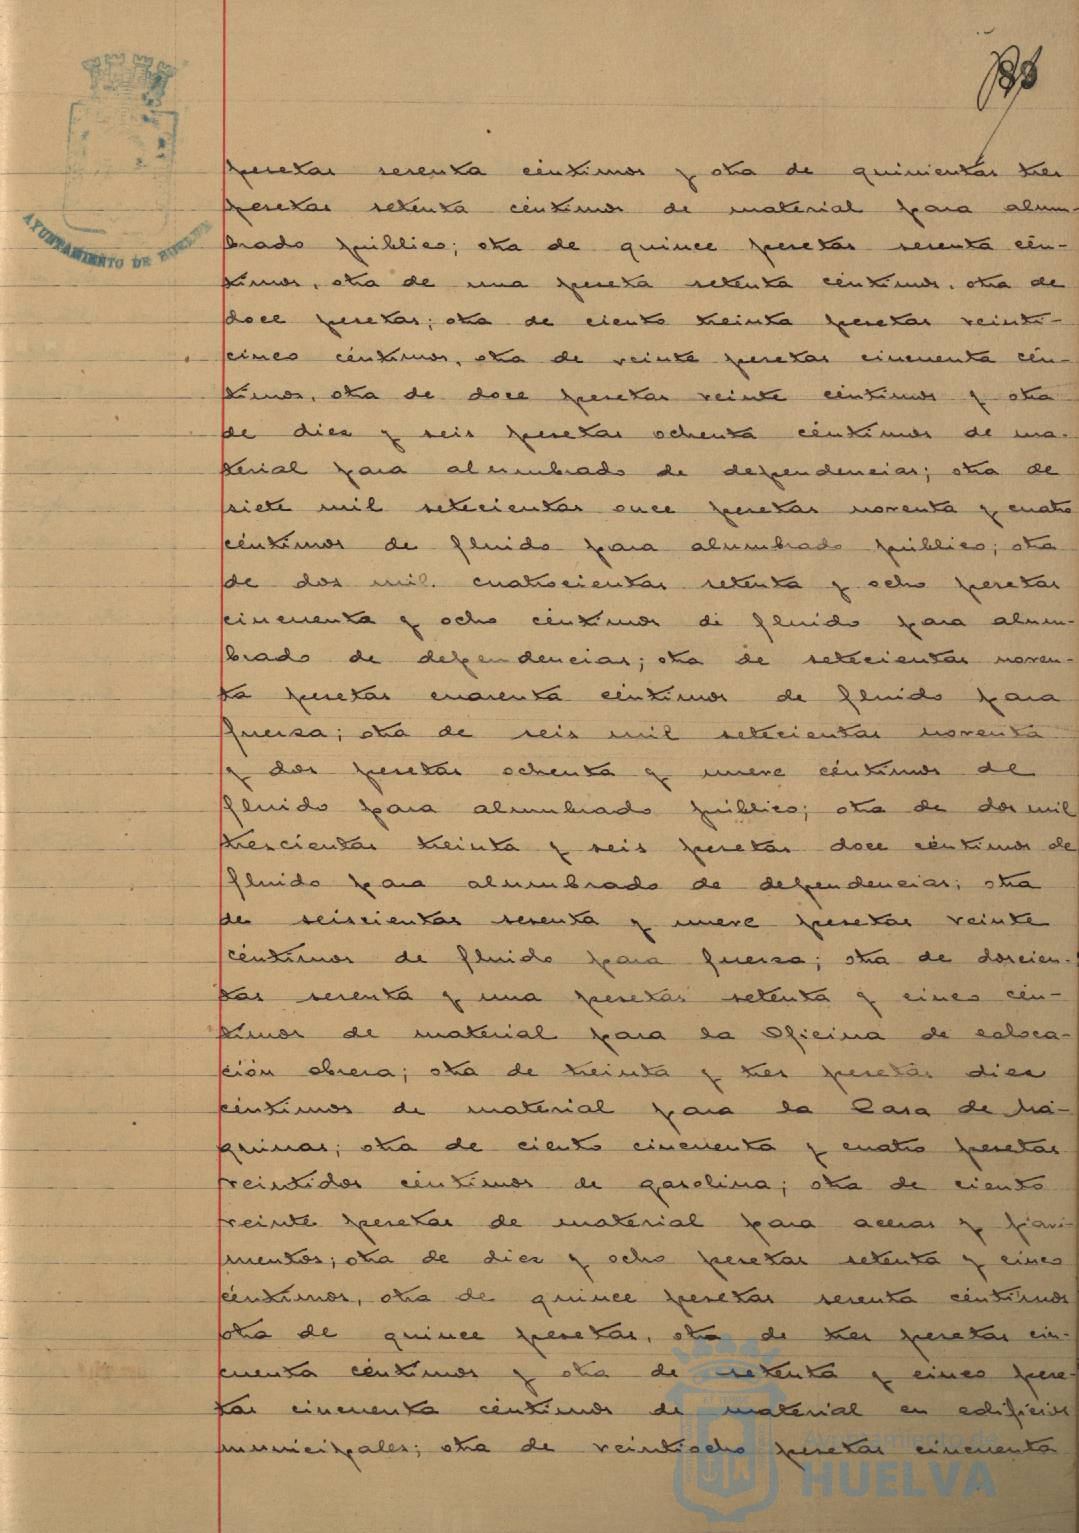 AYUNTAMIENTO DE HUELVA
pesetas sesenta céntimos y otra de quinientas tres
pesetas setenta céntimos de material para alum-
brado público; otra de quince pesetas sesenta cén-
timos, otra de una peseta setenta céntimos, otra de
doce pesetas; otra de ciento treinta pesetas veinti-
cinco céntimos, otra de veinte pesetas cincuenta cén-
timos, otra de doce pesetas veinte céntimos y otra
de diez y seis pesetas ochenta céntimos de ma-
terial para alumbrado de dependencias; otra de
siete mil setecientas once pesetas noventa y cuatro
céntimos de fluido para alumbrado público; otra
de dos mil cuatrocientas setenta y ocho pesetas
cincuenta y ocho céntimos de fluido para alum-
brado de dependencias; otra de setecientas noven-
ta pesetas cuarenta céntimos de fluido para
fuerza; otra de seis mil setecientas noventa
y dos pesetas ochenta y nueve céntimos de
fluido para alumbrado público; otra de dos mil
trescientas treinta y seis pesetas doce céntimos de
fluido para alumbrado de dependencias; otra
de seiscientas sesenta y nueve pesetas veinte
céntimos de fluido para fuerza; otra de doscien-
tas sesenta y una pesetas setenta y cinco cén-
timos de material para la Oficina de coloca-
ción obrera; otra de treinta y tres pesetas diez
céntimos de material para la Casa de Má-
quinas; otra de ciento cincuenta y cuatro pesetas
veintidos céntimos de gasolina; otra de ciento
veinte pesetas de material para aceras y pavi-
mentos; otra de diez y ocho pesetas setenta y cinco
céntimos, otra de quince pesetas sesenta céntimos
otra de quince pesetas, otra de tres pesetas cin-
cuenta céntimos y otra de setenta y cinco pese-
tas cincuenta céntimos de material en edificios
municipales; otra de veintiocho pesetas cincuenta
Ayuntamiento de
HUELVA